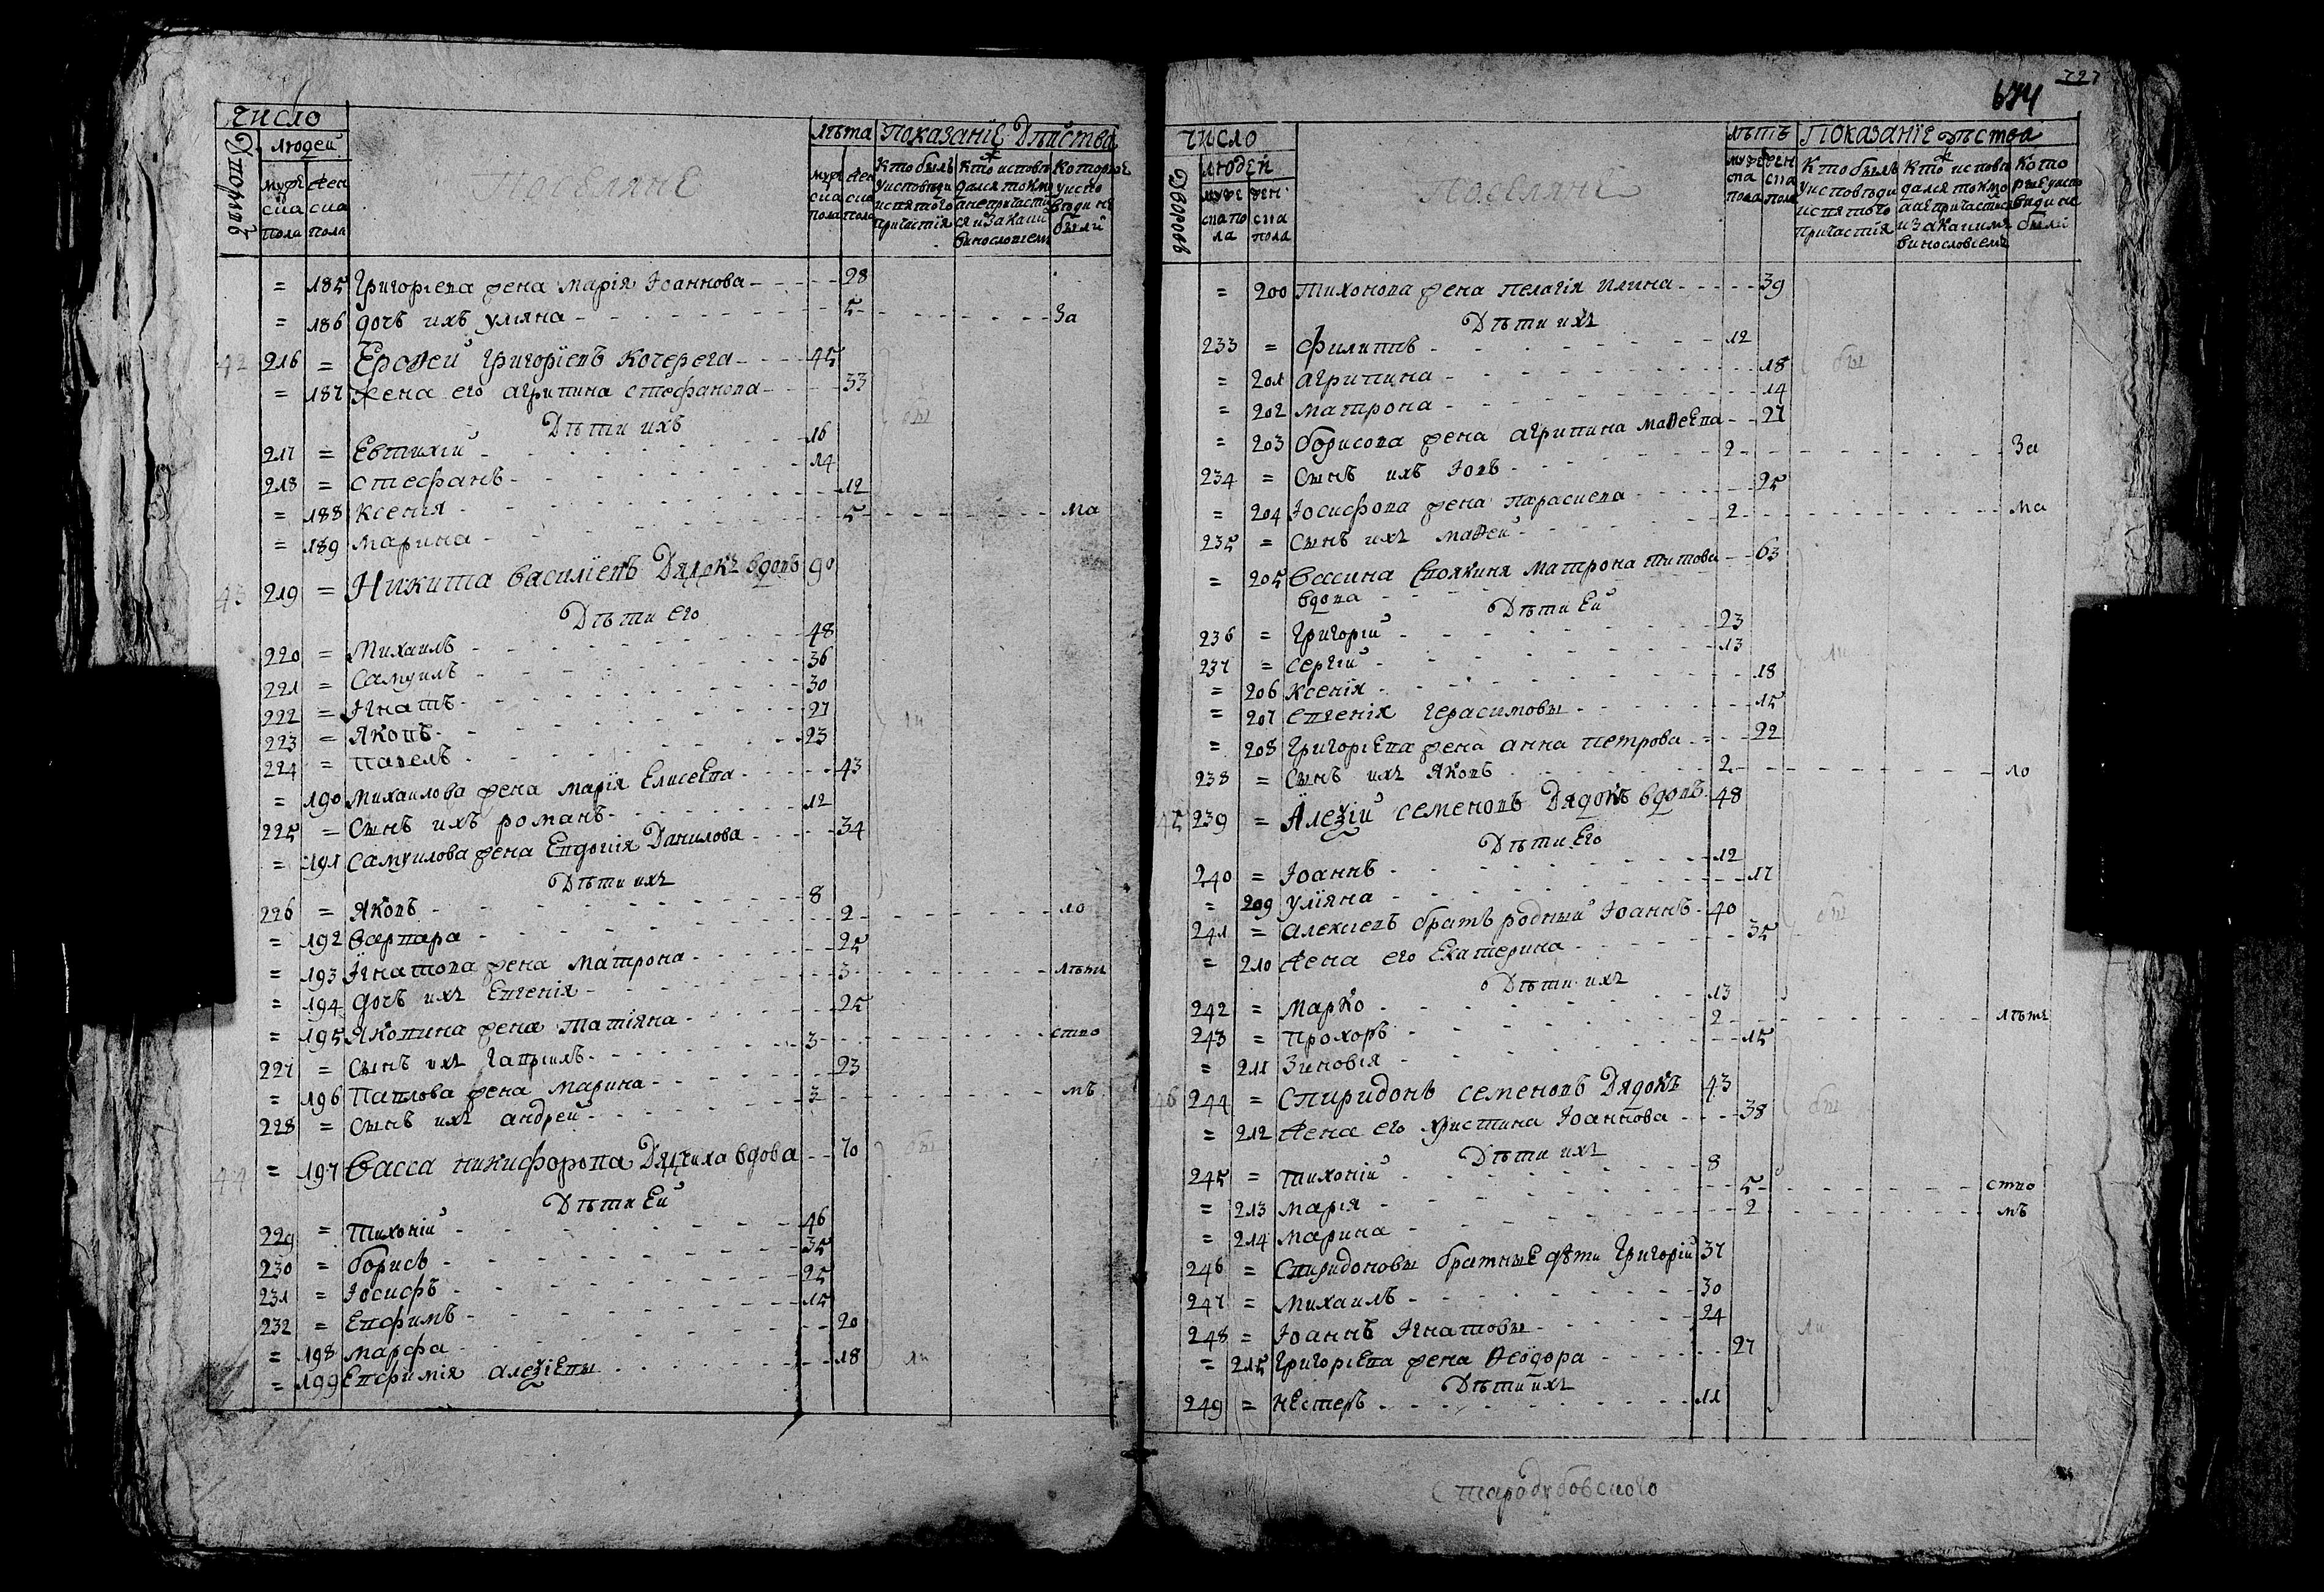 число
Дворовъ
людей
муже
ска
пола
жен
ска
пола
Поселяне
лѣта
муже
ска
пола
жен
ска
пола
Показанїе Дѣйства
Кто былъ
уисповѣди
исвятого
причастїя
Кто исповѣ
дался токмо
анепричасти
ся изакаким
винословием
Которые
уиспо
вѣди не
были
= 185 Григориева жена Марїя Іоаннова 28
= 186 дочь ихъ улияна 5 За
42 216 = Ерофеи Григорїевъ Кочерега 45
= 187 жена его агрипина стефанова 33
Дѣти ихъ
бы
217 = Евтихїи 16
218 = стефанъ 14
= 188 Ксенїя 12
= 189 марина 5 ма
43 219 = Никита василїевъ Дядокъ вдовъ 90
Дѣти его
220 = Михаилъ 48
221 = Самуилъ 36
222 = Игнатъ 30
223 = Яковъ 27
224 = Павелъ 23
= 190 Михаилова жена марїя Елисеева 43
225 = Сынъ ихъ романъ 12
= 191 самуилова жена Евдокїя Данилова 34
Дѣти ихъ
226 = Яковъ 8
= 192 варвара 2 ло
= 193 Игнатова жена матрона 25
= 194 дочь ихъ Евгенїя 3 лѣты
= 195 Яковлина жена татїяна 25
227 = Сынъ ихъ гавриилъ 3 ство
= 196 Павлова жена марина 23
228 = Сынъ ихъ андреи 3 мъ
44 = 197 васса никифорова Дядчиха вдова 70 бы
Дѣти Еи
229 = Тихонїи 46
230 = борисъ 35
231 = Іосифъ 25
232 = Евфимъ 15
= 198 марфа 20
= 199 Евфимїя алеѯиевы 18 ли
727
674
число
Дворовъ
людей
муже
ска по
ла
жен
ска
пола
Поселяне
лѣтъ
муже
ска
пола
жен
ска
пола
Показанїе дѣства
Кто былъ
уисповѣди
исвятого
причастїя
Кто исповѣ
дался токмо
анепричастися
изакакимъ
винословиемъ
Кото
рые уиспо
вѣди не
были
= 200 Тихонова жена пелагїя илина 39
Дѣти ихъ
233 = филиппъ 12
= 201 агрипина 18 бы
= 202 матрона 14
= 203 борисова жена агрипина мафеева 27
234 = Сынъ ихъ Іовъ 2 За
= 204 Іосифова жена парасиева 25
235 = Сынъ ихъ мафеи 2 ма
= 205 вассина своякиня матрона титова 63
вдова
Дѣти Еи
236 = Григорїи 23
237 = сергїи 13
= 206 Ксенїя 18
= 207 евгенїя герасимовы 15
= 208 Григориева жена анна петрова 22
238 = Сынъ ихъ яковъ 2 ло
45 239 = Алеѯїи семеновъ Дядокъ вдовъ 48
Дѣти Его
240 = Іоаннъ 12
= 209 улїяна 17
241 = алексиевъ братъ родныи Іоаннъ 40
= 210 жена его Екатерина 35
Дѣти ихъ
242 = марко 13
243 = Прохоръ 2 лѣты
= 211 Зиновїя 15
46 244 = Спиридонъ семеновъ Дядокъ 43
= 212 жена его христина Іоаннова 38
Дѣти ихъ
245 = тихонїи 8
= 213 марїя 5 ство
= 214 марина 2 мъ
246 = Спиридоновы братные дѣти Григорїи 37
247 = михаилъ 30
248 = Іоаннъ Игнатовы 24
= 215 Григориева жена Феодора 27
Дѣти ихъ
249 = нестеръ 11
Стародубовского